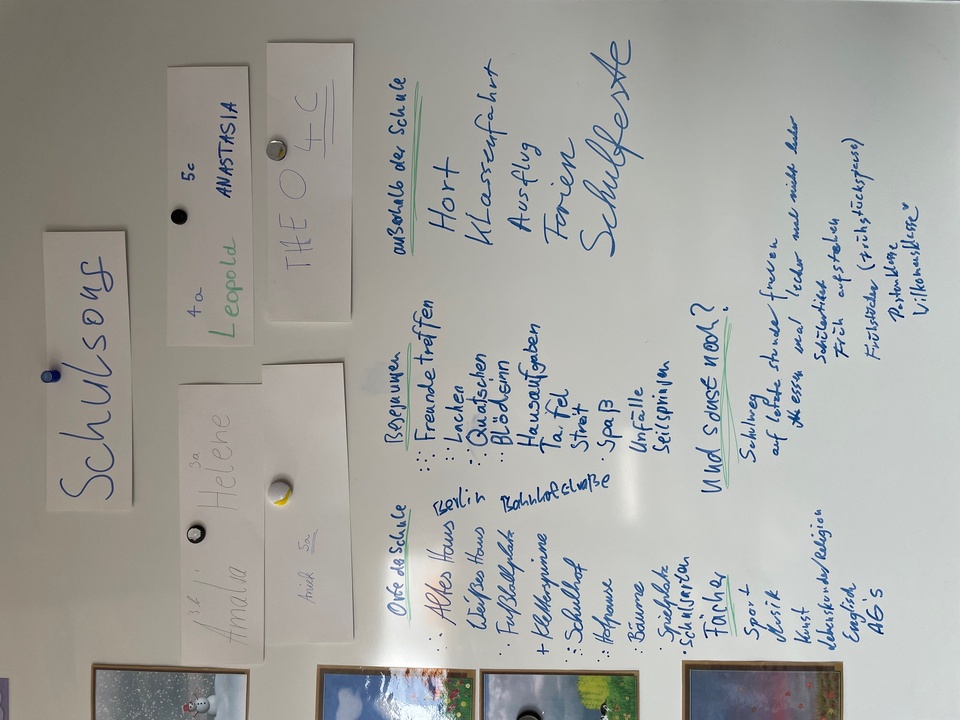 Schulsong
3a
Amalia Helene
Anick 5a
4a 5c
Leopold ANASTASIA
THEO 4C
Orte der Schule
Altes Haus Berlin
Weißes Haus
Fußballplatz Bahnhofstraße
+ Kletterspinne
Schulhof
Hofpause
Bäume
Spielplatz
Schulgarten
Fächer
Sport
Musik
Kunst
Lebenskunde/Religion
Englisch
AG's
Begegnungen
Freunde treffen
Lachen
Quatschen
Blödsinn
Hausaufgaben
Tafel
Streit
Spaß
Unfälle
Seilspringen
außerhalb der Schule
Hort
Klassenfahrt
Ausflug
Ferien
Schulfeste
Und sonst noch?
Schulweg
auf letzte Stunde freuen
Essen mal lecker mal nicht lecker
Schülerticket
Früh aufstehen
Frühstücken (Frühstückspause)
Vilkomensklasse